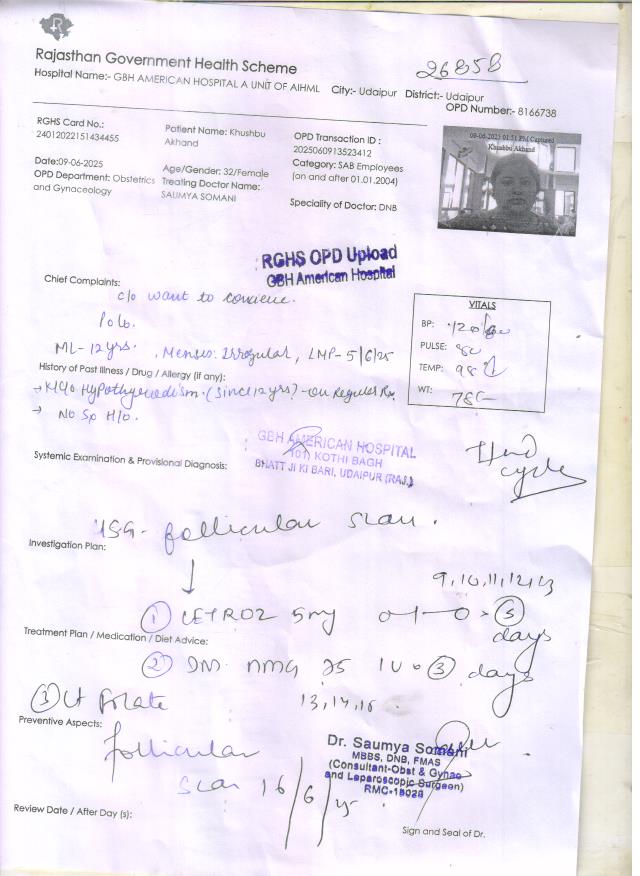 Rajasthan Government Health Scheme
26858
Hospital Name:- GBH AMERICAN HOSPITAL A UNIT OF AIHML City:- Udaipur District:- Udaipur
OPD Number:- 8166738
RGHS Card No.:
24012022151434455
Patient Name: Khushbu
Akhand
OPD Transaction ID :
2025060913523412
09-06-2025 01:51 PM Captured
Khushbu Akhand
Date:09-06-2025
OPD Department: Obstetrics
and Gynaceology
Age/Gender: 32/Female
Treating Doctor Name:
SAUMYA SOMANI
Category: SAB Employees
(on and after 01.01.2004)
Speciality of Doctor: DNB
RGHS OPD Upload
GBH American Hospital
Chief Complaints:
c/o want to conceive.
P0L0.
ML-12yrs. , Menses: Irregular, LMP-5/6/25
VITALS
BP: 120/80
PULSE:
TEMP: 98
WT: 78
History of Past Illness / Drug / Allergy (if any):
→ K/c/o Hypothyroidism. (Since 12 yrs) - on Regular Rx.
→ No Sp H/o.
GBH AMERICAN HOSPITAL
101, KOTHI BAGH
BHATT JI KI BARI, UDAIPUR (RAJ.)
Systemic Examination & Provisional Diagnosis:
cycle
USG - follicular scan.
Investigation Plan:
↓
9,10,11,12,13
① LETROZ 5mg 0-1-0 x ⑤ days
Treatment Plan / Medication / Diet Advice:
② HMG 75 IU x ③ days
③ folate
Preventive Aspects:
follicular
scan 16/6/25
Dr. Saumya Somani
MBBS, DNB, FMAS
(Consultant-Obst & Gynae
and Laparoscopic Surgeon)
Review Date / After Day (s):
Sign and Seal of Dr.